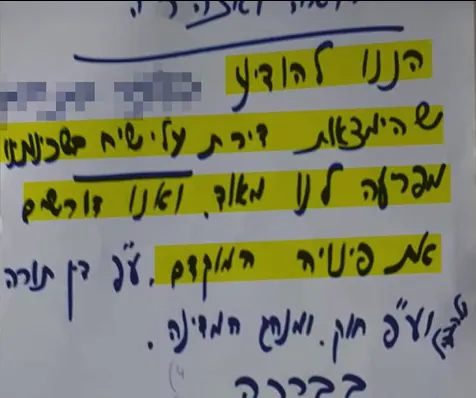 הננו להודיע
שהימצאות דירת עלי שיח בשכונתנו
מפרעה לנו מאוד. ואנו דורשים
את פינויה המוקדם. ע"פ דין תורה
וע"פ חוק. ומנהג המדינה.
בברכה